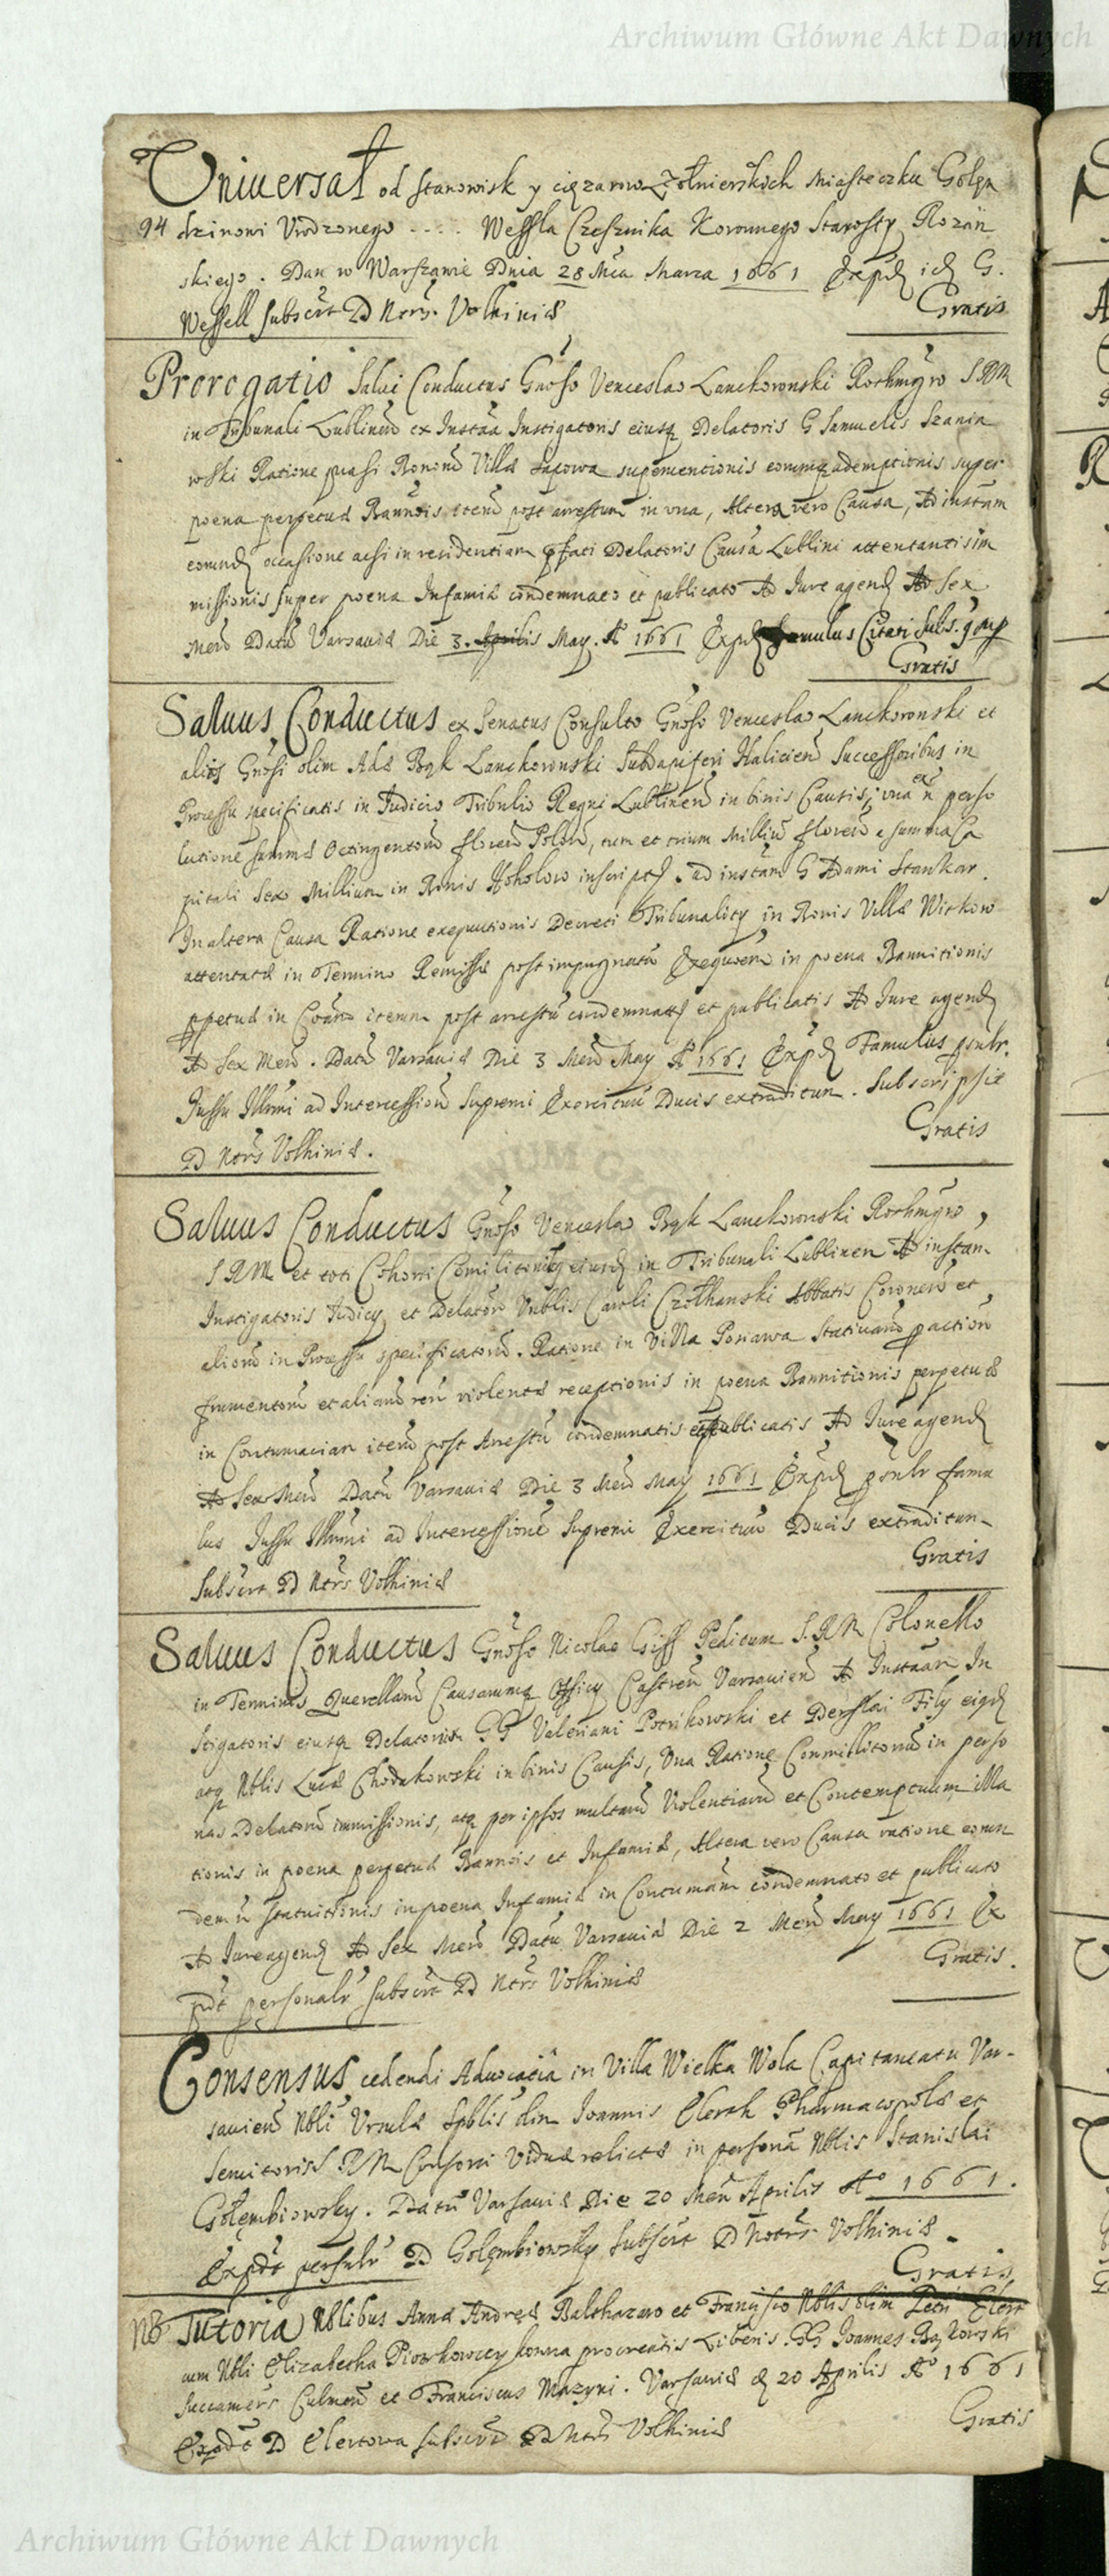 Archiwum Główne Akt Dawnych
Uniuersał od stanowisk y cięzarow Zołnierskich Miasteczku Golęn
94 dzinowi Vrodzonego .... Wessla Czesznika Koronnego Starosty Rozań
skiego. Dan w Warszawie Dnia 28 Mca Marca 1661 Expd id G.
Wessell subscrt D Ntrs. Volhiniæ Gratis
Prorogatio Salui Conductus Gnoso Venceslao Lanckoronski Rothmgro SRM
in Tribunali Lublinen ex Instaa Instigatoris eiusq Delatoris G Samuelis Szania
wski Ratione quasi Bonorum Villæ superuentionis eorumq ademptionis super
poena perpetuæ Bannois item post arrestum in vna, Altera vero Causa, Ad instam
eorund occasione acsi in residentiam pfati Delatoris Causa Lublini attentantis im
missionis super poena Infamiæ condemnato et publicato Ad Iure agend Ad Sex
Men Datu Varsauiæ Die 3. Aprilis May. Ao 1661 Expd famulus Citati Subs.
Gratis
Saluus Conductus ex Senatus Consulto Gnoso Venceslao Lanckoronski et
aliis Gnosi olim Adæ Bqk Lanckoronski Subdapiferi Halicien Successoribus in
Processu specificatis in Iudicio Tribulio Regni Lublinen in binis Causis, vna ex n perso
lutione summæ Octingentorum floren Polon, tum et trium Millium floren a summa Ca
pitali Sex Millium in Bonis Hoholow inscript ad instam G Adami Stankar.
In altera Causa Ratione exequutionis Decreti Tribunality in Bonis Villæ Witkow
attentatæ in Termino Remissæ post impugnatu Exequorem in poena Bannitionis
ppetuæ in Coam item post arrestu condemnatis et publicatis Ad Iure agend
Ad Sex Men. Datu Varsauiæ Die 3 Men May Ao 1661 Expd Famulus psnlr.
Iussu Illmi ad Intercession Supremi Exercituu Ducis extraditum. Subscripsit
D Ntrs Volhiniæ. Gratis
Saluus Conductus Gnoso Venceslao Bqk Lanckoronski Rothmgro,
SRM et toti Cohorti Comilitonu eiusd in Tribunali Lublinen Ad instan
Instigatoris Iudicy et Delator Vnblis Caroli Czolhanski Abbatis Coronen et
aliorum in Processu specificatorum. Ratione in Villa Poniawa Statiuaru pactioru
frumentorum et aliaru reru violentæ receptionis in poena Bannitionis perpetuæ
in Contumaciam item post Arrestu condemnatis et publicatis Ad Iure agend
Ad Sex Men Datu Varsauiæ Die 3 Men May 1661 Expd psnlr famu
lus Iussu Illmi ad Intercessione Supremi Exercituu Ducis extraditum
Subscrt D Ntrs Volhiniæ Gratis
Saluus Conductus Gnoso Nicolao Giss Peditum S.R.M Colonello
in Terminis Querellaru Causarumq Officy Castren Varsauien Ad Instaam In
stigatoris eiusq Delatoris GG Valeriani Potrikowski et Derslai Fily eiusd
atq Nblis Lucæ Chodakowski in binis Causis, Vna Ratione Commilitonu in perso
nas Delatoru immissionis, atq per ipsos multaru Violentiaru et Contemptuum illa
tionis in poena perpetuæ Bannois et Infamiæ, Altera vero Causa ratione eorun
dem n statuitionis in poena Infamiæ in Contumam condemnato et publicato
Ad Iure agend Ad Sex Men Datu Varsauiæ Die 2 Men May 1661 Ex
pdt personalr subscrt D Ntrs Volhiniæ Gratis.
Consensus cedendi Aduocatia in Villa Wielka Wola Capitaneatu Var-
sauien Nbli Vrsulæ Spblis olim Ioannis Clerth Pharmacopolæ et
Seruitoris SRM Consorti Viduæ relictæ in persona Nblis Stanislai
Gołęmbiowsky. Datu Varsauiæ Die 20 Men Aprilis Ao 1661.
Expdt persnlr D Golęmbiowsky subscrt D Notrs Volhiniæ.
Gratis
NB Tutoria Nblibus Annæ Andreæ Balthazaro et Francisco Nblis olim Petri Clert
cum Nbli Elizabetha Piotrkowczykowna procreatis Liberis. GG Ioannes Bąkowski
Succamers Culmen et Franciscus Mazyni. Varsauiæ d 20 Aprilis Ao 1661
Expdt D Clertowa subscrt D Ntrs Volhiniæ Gratis
Archiwum Główne Akt Dawnych